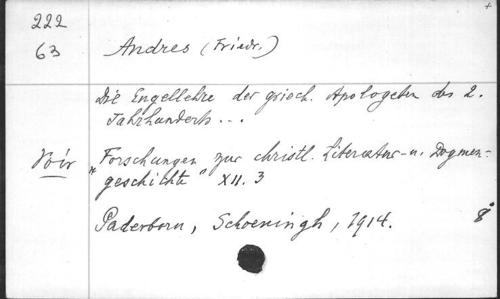 222
63
Andres (Friedr.)
Die Engellehre der griech. Apologeten des 2.
Jahrhunderts ...
Voir "Forschungen zur christl. Literatur- u. Dogmen-
geschichte" XII. 3
Paderborn, Schoeningh, 1914. 8°